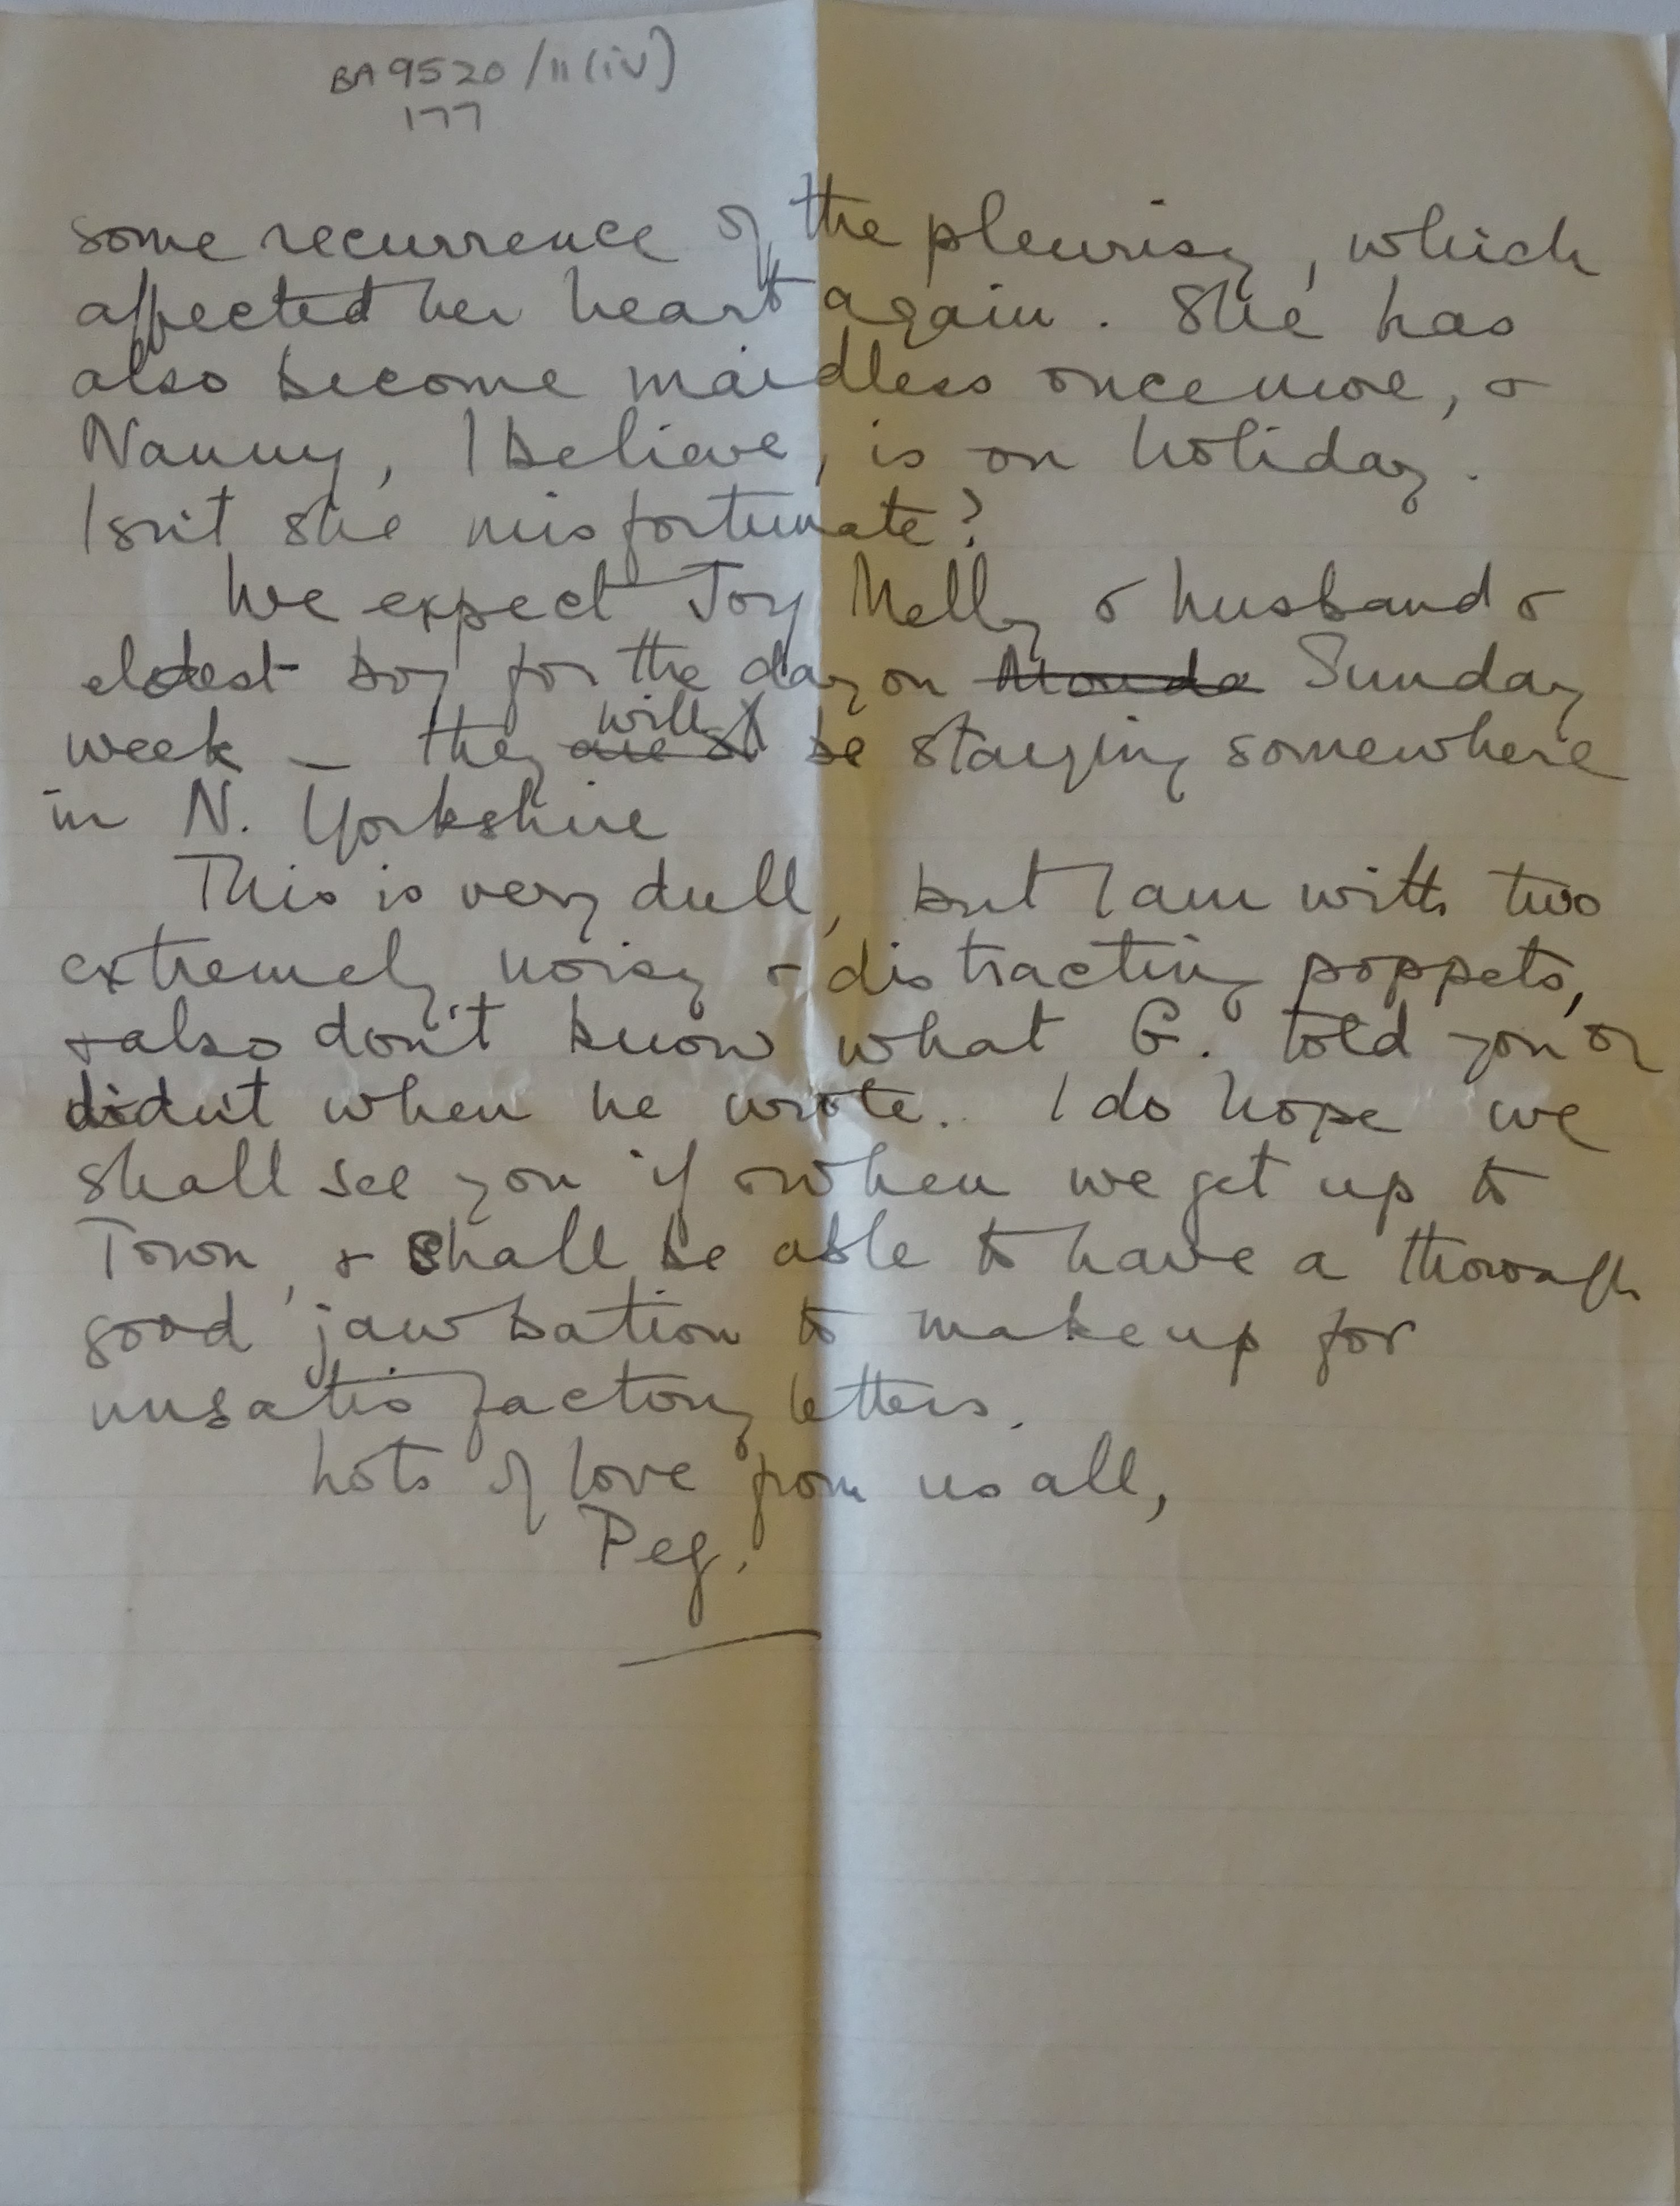 BA9520/11(iv)
177
some recurrence of the pleurisy, which
affected her heart again. She has
also become maidless once more, &
Nanny, I believe, is on holiday.
Isn't she misfortunate?
We expect Joy Melly & husband &
eldest boy for the day on Monda Sunday
week – they are st will be staying somewhere
in N. Yorkshire
This is very dull, but I am with two
extremely noisy & distracting poppets,
& also don't know what G. told you or
didn't when he wrote. I do hope we
shall see you if & when we get up to
Town, & shall be able to have a thorough
good jawbation to make up for
unsatisfactory letters.
Lots of love from us all,
Peg.